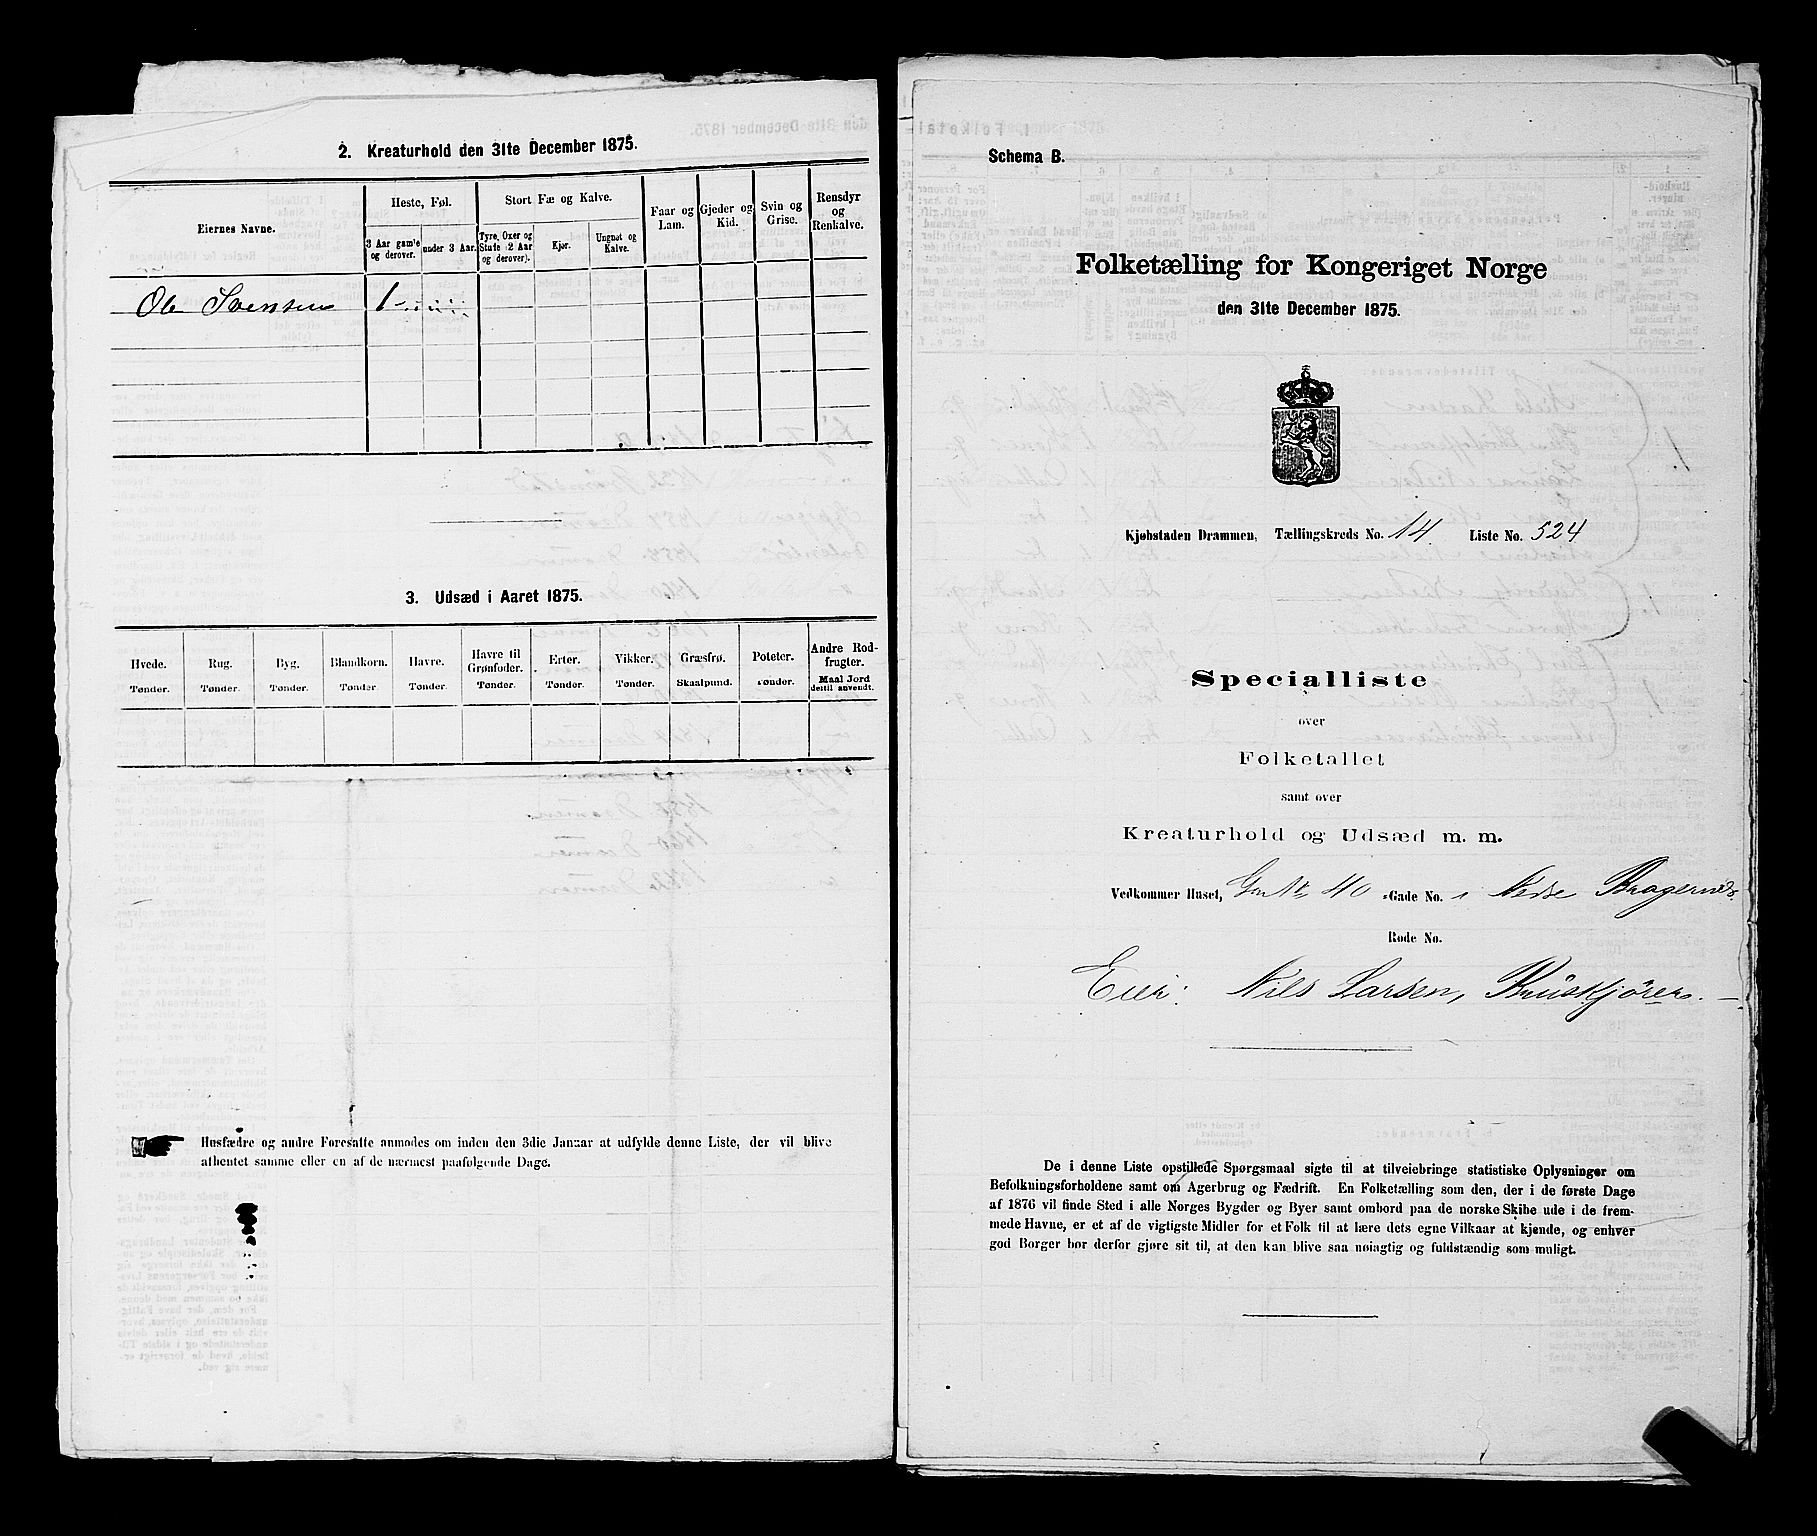 2. Kreaturhold den 31te December 1875.
Eiernes Navne.
Heste, Føl.
3 Aar gamle og derover.
under 3 Aar.
Stort Fæ og Kalve.
Tyre, Oxer og Stude (2 Aar og derover).
Kjør.
Ungnøt og Kalve.
Faar og Lam.
Gjeder og Kid.
Svin og Grise.
Rensdyr og Renkalve.
Ole Svensen 1
3. Udsæd i Aaret 1875.
Hvede. Tønder.
Rug. Tønder.
Byg. Tønder.
Blandkorn. Tønder.
Havre. Tønder.
Havre til Grønfoder. Tønder.
Erter. Tønder.
Vikker. Tønder.
Græsfrø. Skaalpund.
Poteter. Tønder.
Andre Rodfrugter. Maal Jord dertil anvendt.
Husfædre og andre Foresatte anmodes om inden den 3die Januar at udfylde denne Liste, der vil blive
afhentet samme eller en af de nærmest paafølgende Dage.
Schema B.
Folketælling for Kongeriget Norge
den 31te December 1875.
Kjøbstaden Drammen, Tællingskreds No. 14. Liste No. 524
Specialliste
over
Folketallet
samt over
Kreaturhold og Udsæd m. m.
Vedkommer Huset, 40 Gade No. i Nedre Bragernes
Rode No.
Eier: Nils Larsen, Bruskjører.
De i denne Liste opstillede Spørgsmaal sigte til at tilveiebringe statistiske Oplysninger om
Befolkningsforholdene samt om Agerbrug og Fædrift. En Folketælling som den, der i de første Dage
af 1876 vil finde Sted i alle Norges Bygder og Byer samt ombord paa de norske Skibe ude i de frem-
mede Havne, er et af de vigtigste Midler for et Folk til at lære dets egne Vilkaar at kjende, og enhver
god Borger bør derfor gjøre sit til, at den kan blive saa nøiagtig og fuldstændig som muligt.